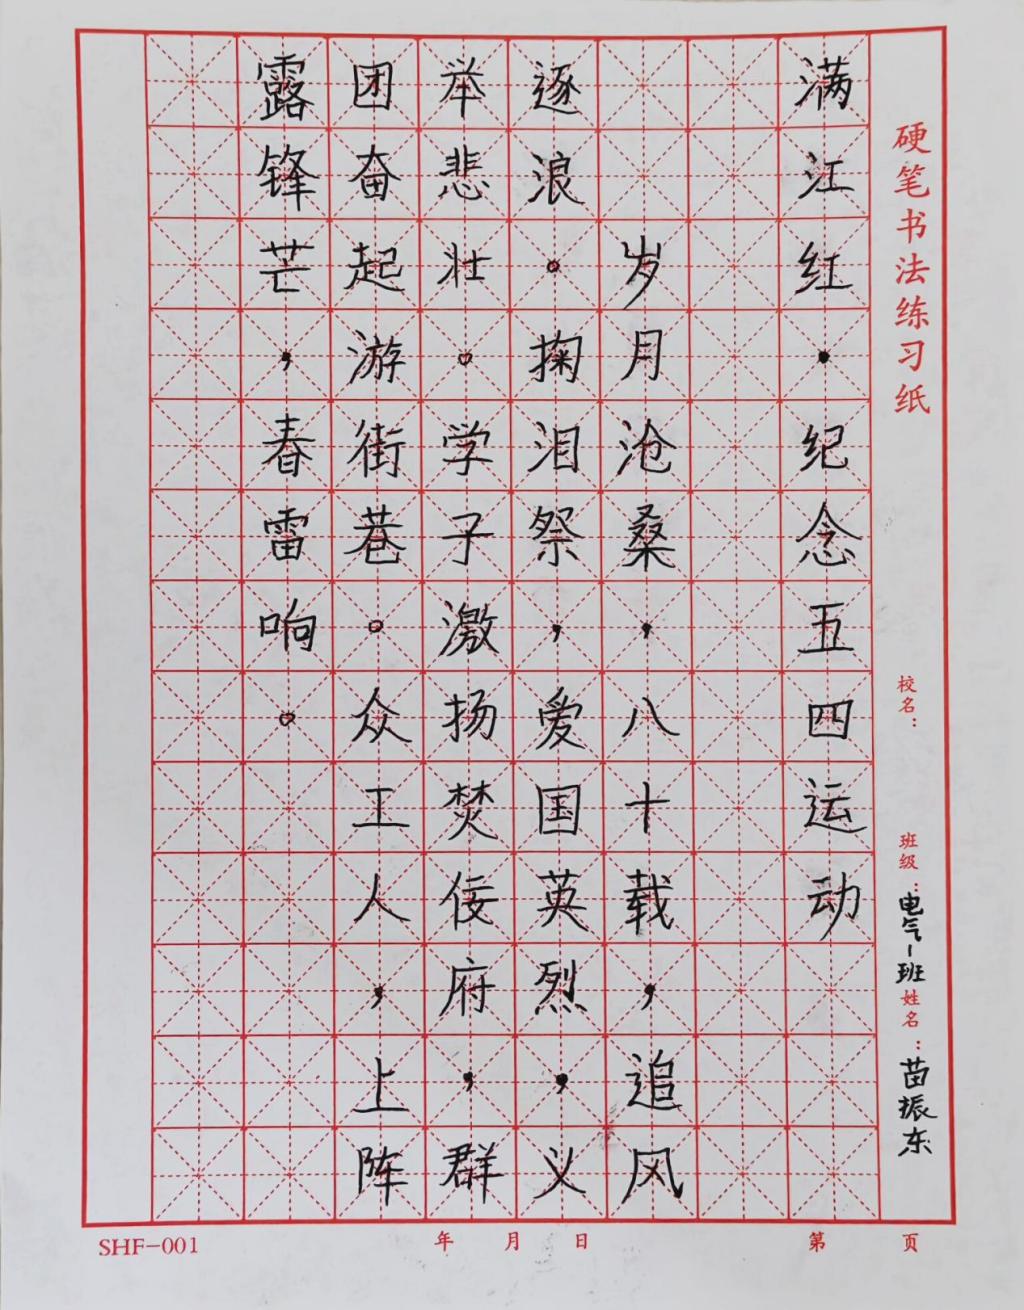 硬笔书法练习纸
校名：
班级：电气一班
姓名：苗振东
满江红·纪念五四运动
岁月沧桑，八十载，追风
逐浪。掬泪祭，爱国英烈，义
举悲壮。学子激扬焚佞府，群
团奋起游街巷。众工人，上阵
露锋芒，春雷响。
SHF-001
年 月 日
第 页